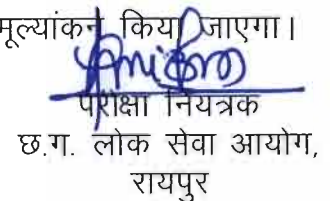 मूल्यांकन किया जाएगा।
परीक्षा नियंत्रक
छ.ग. लोक सेवा आयोग,
रायपुर